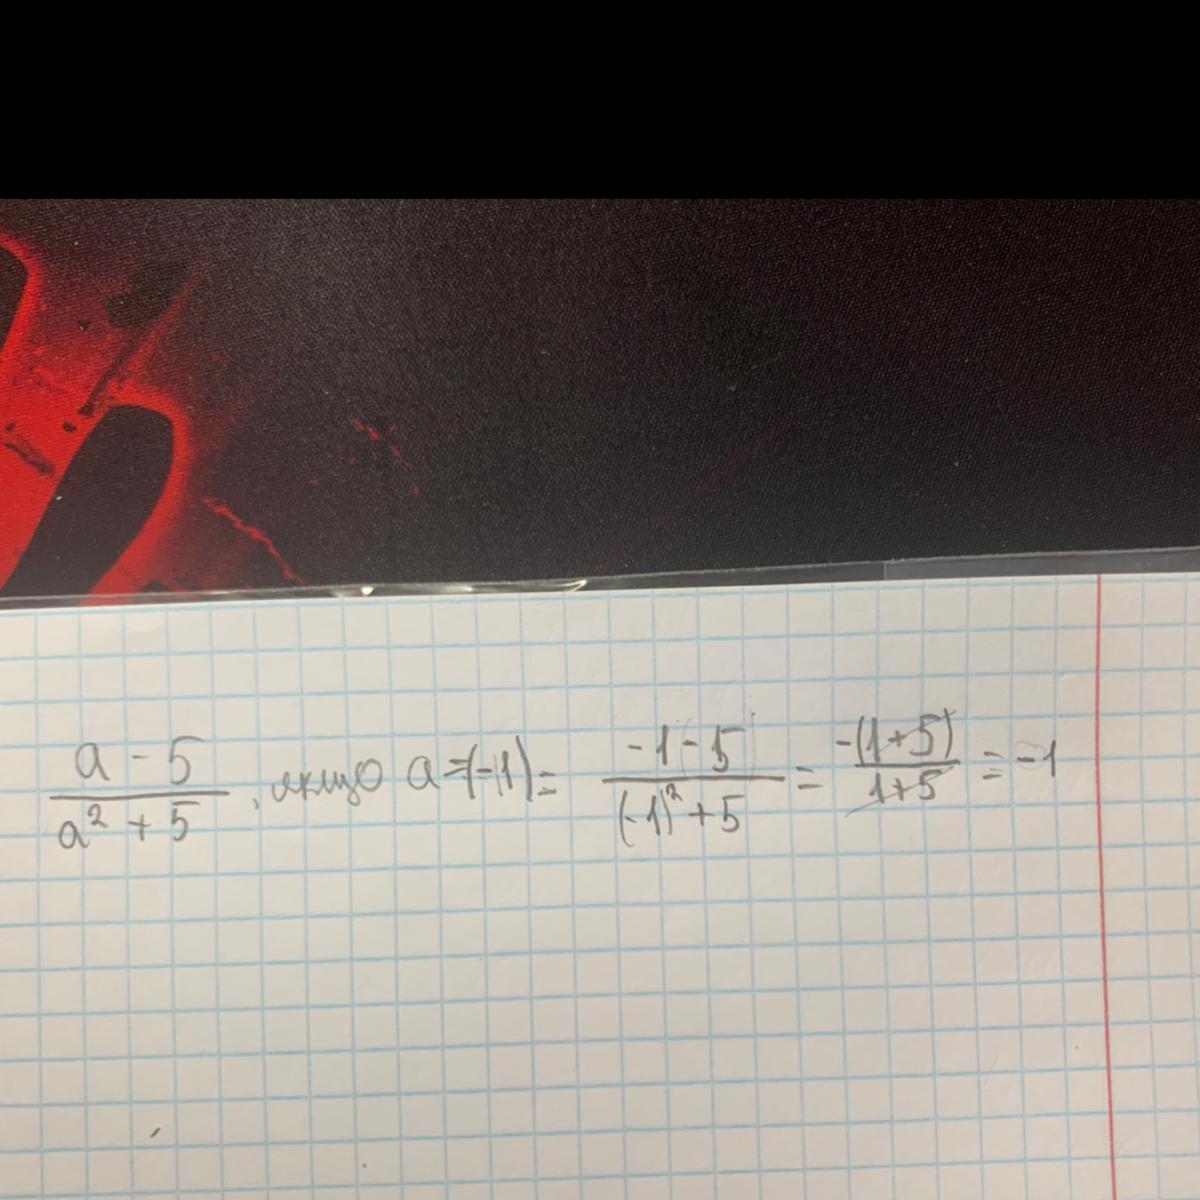 (a - 5)/(a² + 5), якщо a =(-1) = (-1 - 5)/((-1)² + 5) = (-(1+5))/(1+5) = -1